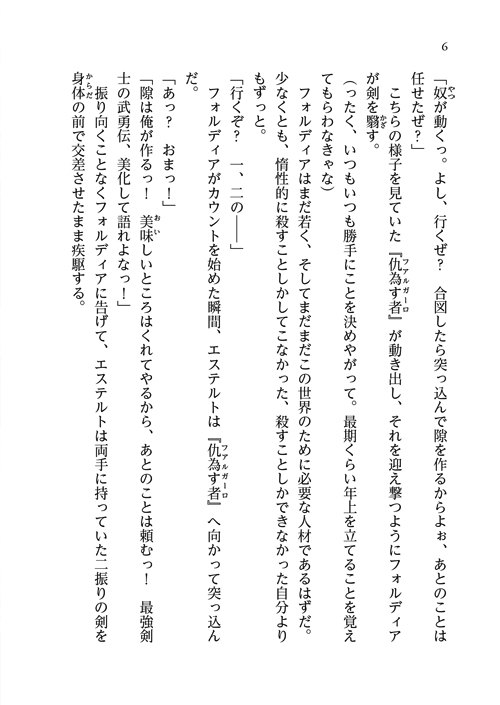 6
「奴が動くっ。よし、行くぜ？　合図したら突っ込んで隙を作るからよぉ、あとのことは
任せたぜ？」
　こちらの様子を見ていた『仇為す者』が動き出し、それを迎え撃つようにフォルディア
が剣を翳す。
（ったく、いつもいつも勝手にことを決めやがって。最期くらい年上を立てることを覚え
てもらわなきゃな）
　フォルディアはまだ若く、そしてまだまだこの世界のために必要な人材であるはずだ。
少なくとも、惰性的に殺すことしかしてこなかった、殺すことしかできなかった自分より
もずっと。
「行くぞ？　一、二の――」
　フォルディアがカウントを始めた瞬間、エステルトは『仇為す者』へ向かって突っ込ん
だ。
「あっ？　おまっ！」
「隙は俺が作るっ！　美味しいところはくれてやるから、あとのことは頼むっ！　最強剣
士の武勇伝、美化して語れよなっ！」
　振り向くことなくフォルディアに告げて、エステルトは両手に持っていた二振りの剣を
身体の前で交差させたまま疾駆する。